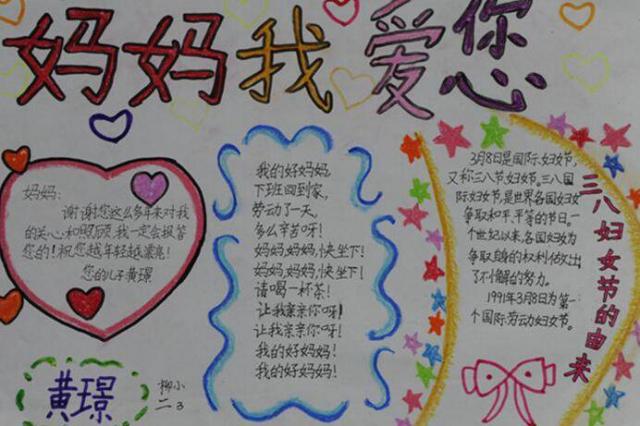 妈妈我爱您
妈妈:
谢谢您这么多年来对我
的关心和照顾,我一定会报答
您的!祝您越年轻越漂亮!
您的儿子黄璟
黄璟
柳小
二3
我的好妈妈,
下班回到家,
劳动了一天,
多么辛苦呀!
妈妈,妈妈,快坐下!
妈妈,妈妈,快坐下!
请喝一杯茶!
让我亲亲你呀!
让我亲亲你呀!
我的好妈妈!
我的好妈妈!
3月8日是国际妇女节,
又称三八节妇女节。三八国
际妇女节,是世界各国妇女
争取和平平等的节日。一
个世纪以来,各国妇女为
争取的权利做出
了不懈的努力。
1991年3月8日为第一
个国际劳动妇女节。
三八妇女节的由来